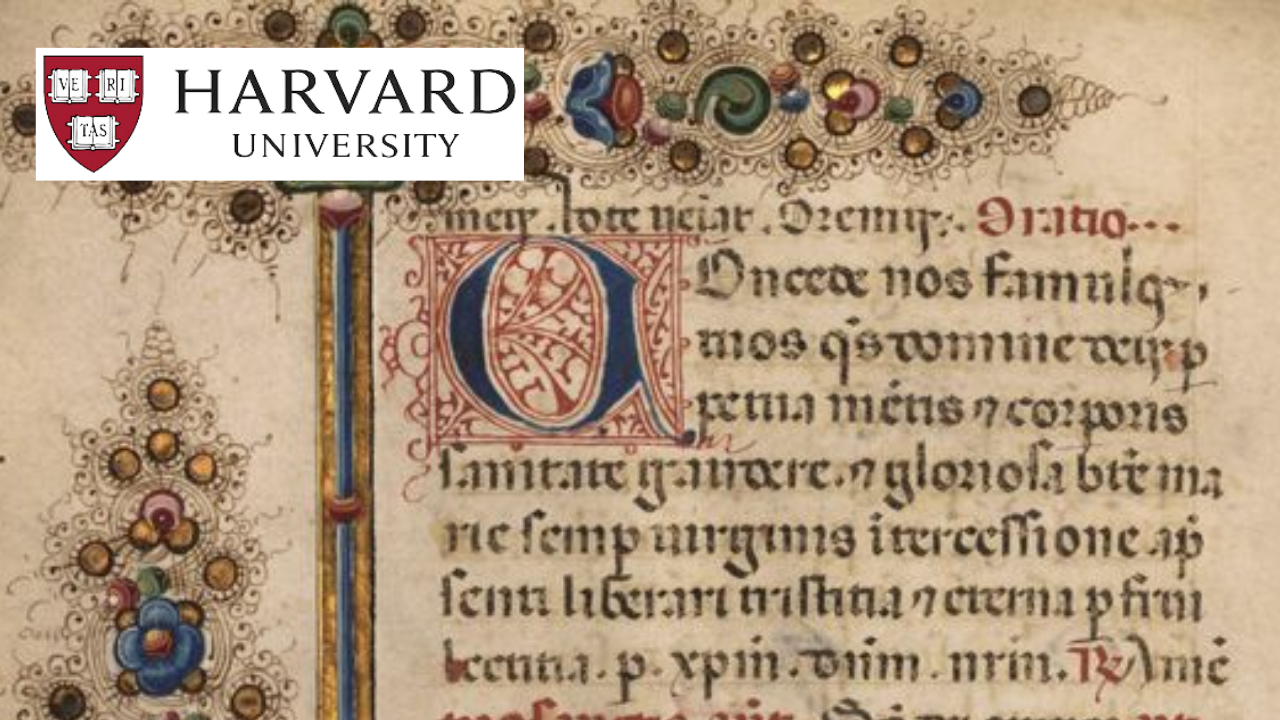 VE RI
TAS
HARVARD
UNIVERSITY
Oremus. Oratio
Oncede nos famulos
tuos qs domine deus p
petua mētis ⁊ corporis
sanitate gaudere. ⁊ gloriosa btē ma
rie semp uirginis ītercessione a p̄
senti liberari tristitia ⁊ eterna p frui
lectitia. p. xpm. dūm. nrm. R Amē